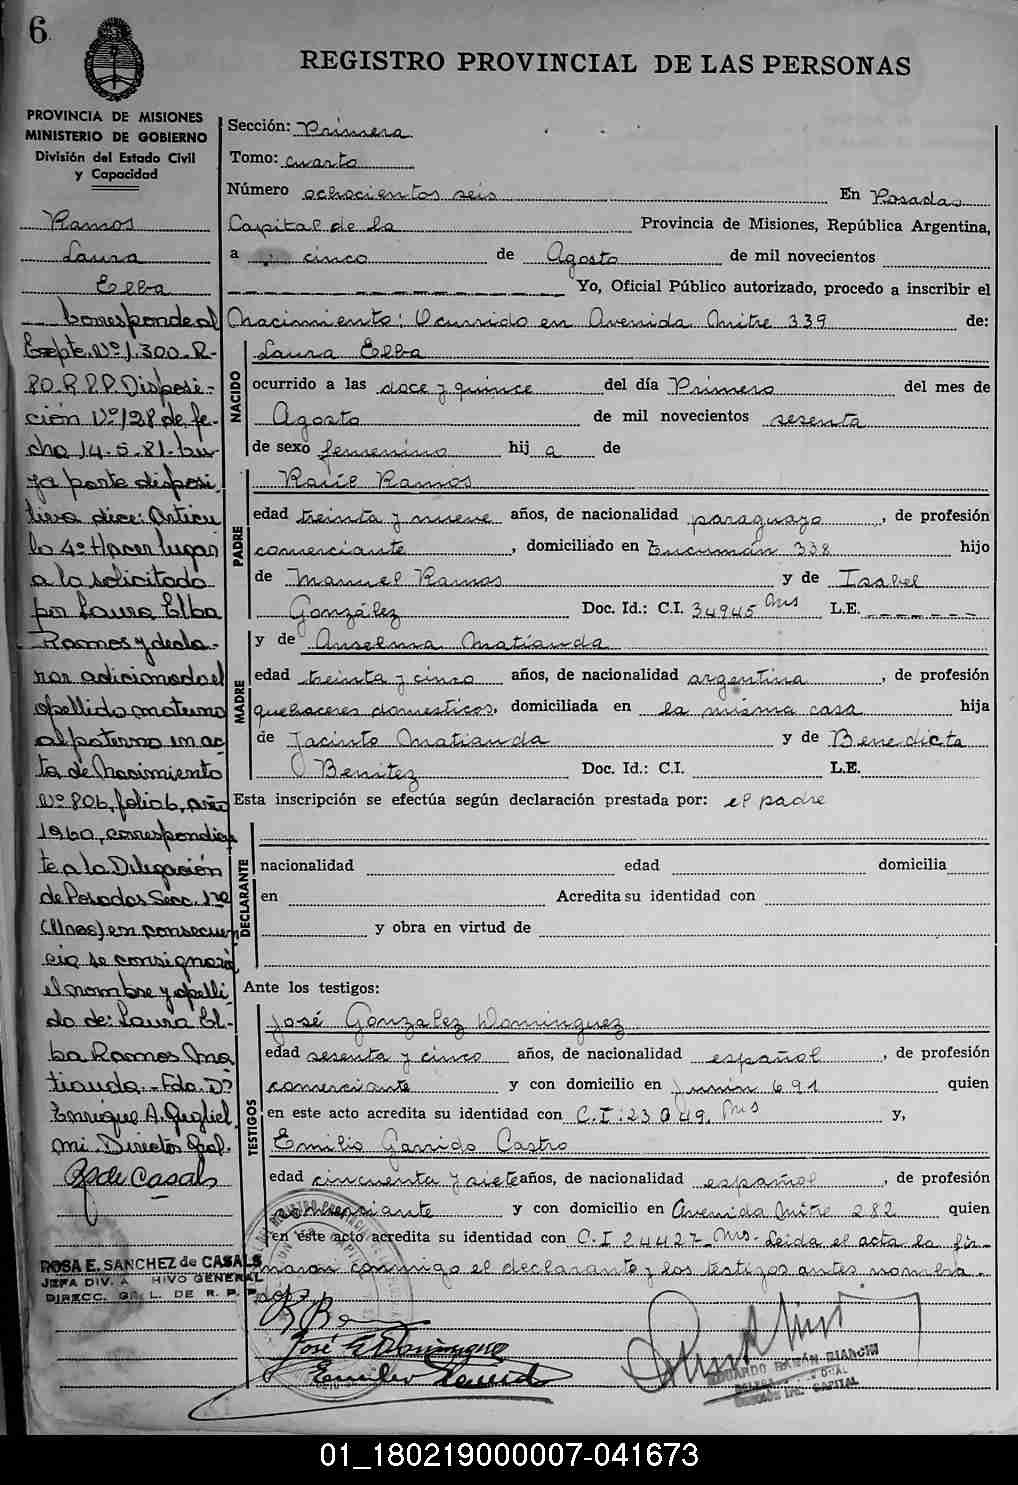 6
REGISTRO PROVINCIAL DE LAS PERSONAS
PROVINCIA DE MISIONES
MINISTERIO DE GOBIERNO
División del Estado Civil
y Capacidad
Ramos
Laura
Elba
Corresponde al
Expte. Nº 1.300-R-
80-R.P.P. Disposi-
ción Nº 128 de fe-
cha 14-5-81-cu-
ya parte disposi-
tiva dice: Articu
lo 4º Hacer lugar
a lo solicitado
por Laura Elba
Ramos y decla-
rar adicionado el
apellido materno
al paterno en ac
ta de Nacimiento
Nº 806, folio 6, año
1960, correspondien
te a la Delegación
de Posadas Secc. 1ra
(Unos) en consecuen
cia se consignará
el nombre y apelli
do de: Laura El-
ba Ramos Ma
tiauda.- Fdo. Dº
Enrique A. Gugliel
mi. Director Gral.
R S de Casals
ROSA E. SANCHEZ de CASALS
JEFA DIV. A HIVO GENERAL
DIRECC. G L. DE R. P. P.
Sección: Primera
Tomo: cuarto
Número ochocientos seis En Posadas
Capital de la Provincia de Misiones, República Argentina,
a cinco de Agosto de mil novecientos
Yo, Oficial Público autorizado, procedo a inscribir el
Nacimiento: Ocurrido en Avenida Mitre 339 de:
NACIDO
Laura Elba
ocurrido a las doce y quince del día Primero del mes de
Agosto de mil novecientos sesenta
de sexo femenino hij a de
PADRE
Raúl Ramos
edad treinta y nueve años, de nacionalidad paraguayo, de profesión
comerciante, domiciliado en Tucumán 338 hijo
de Manuel Ramos y de Isabel
González Doc. Id.: C.I. 34945 Mns L.E.
MADRE
y de Anselma Matiauda
edad treinta y cinco años, de nacionalidad argentina, de profesión
quehaceres domesticos, domiciliada en la misma casa hija
de Jacinto Matiauda y de Benedicta
Benitez Doc. Id.: C.I. L.E.
Esta inscripción se efectúa según declaración prestada por: el padre
DECLARANTE
nacionalidad edad domicilia
en Acredita su identidad con
y obra en virtud de
Ante los testigos:
TESTIGOS
José Gonzalez Dominguez
edad sesenta y cinco años, de nacionalidad español, de profesión
comerciante y con domicilio en Junin 691 quien
en este acto acredita su identidad con C.I: 23049. Mns y,
Emilio Garrido Castro
edad cincuenta y siete años, de nacionalidad español, de profesión
comerciante y con domicilio en Avenida Mitre 282 quien
en este acto acredita su identidad con C.I 24427-Mns- Leida el acta la fir-
maron conmigo el declarante y los testigos antes nombra-
dos
José G Dominguez
Emilio Garrido
EDUARDO RAMÓN BIANCHI
CAPITAL
01_180219000007-041673